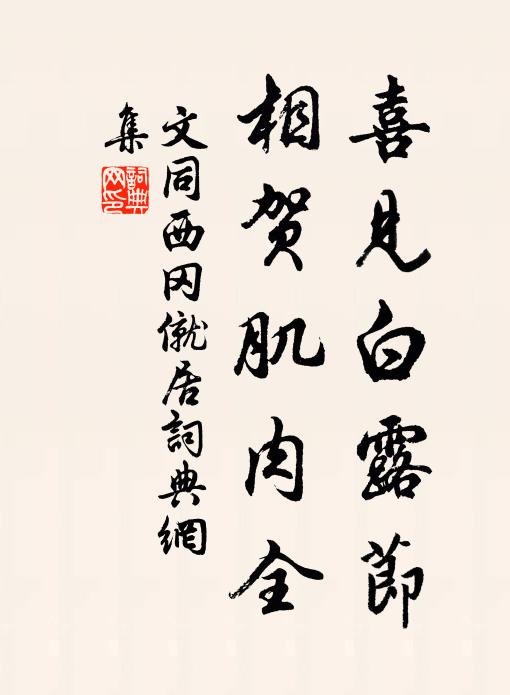 喜見白露節
相贺肌肉全
文同西冈僦居詞典網
集
詞典
网印